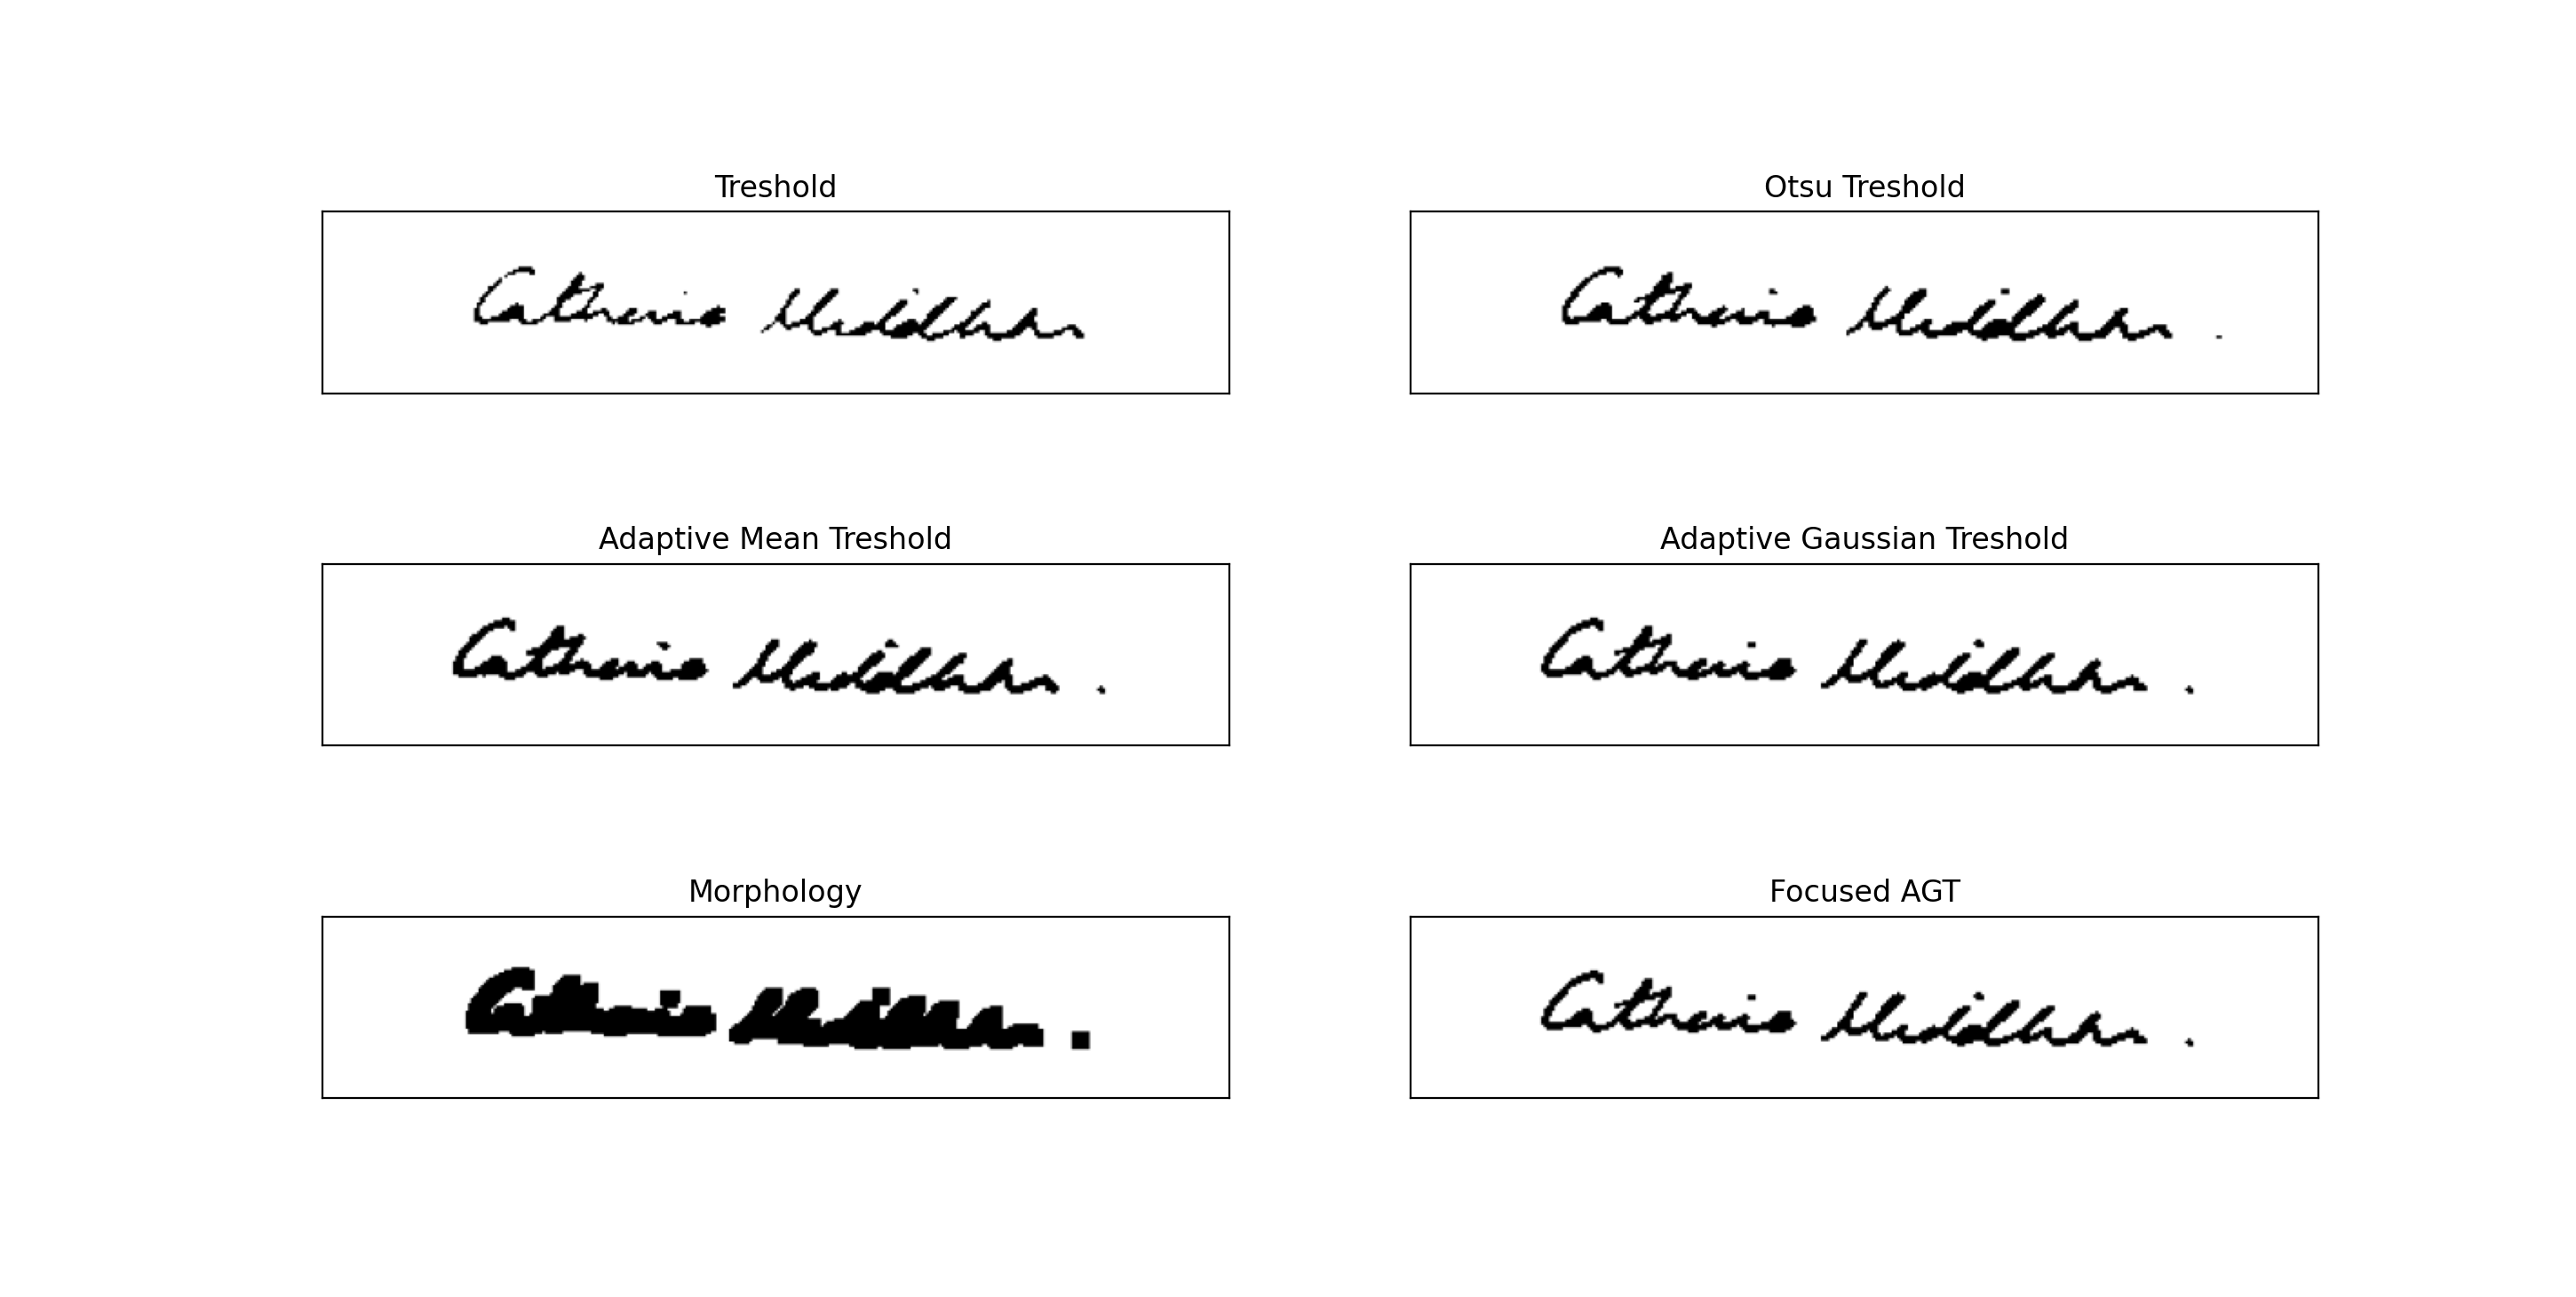 Treshold
Catherine Middleton
Otsu Treshold
Catherine Middleton .
Adaptive Mean Treshold
Catherine Middleton .
Adaptive Gaussian Treshold
Catherine Middleton .
Morphology
Focused AGT
Catherine Middleton .